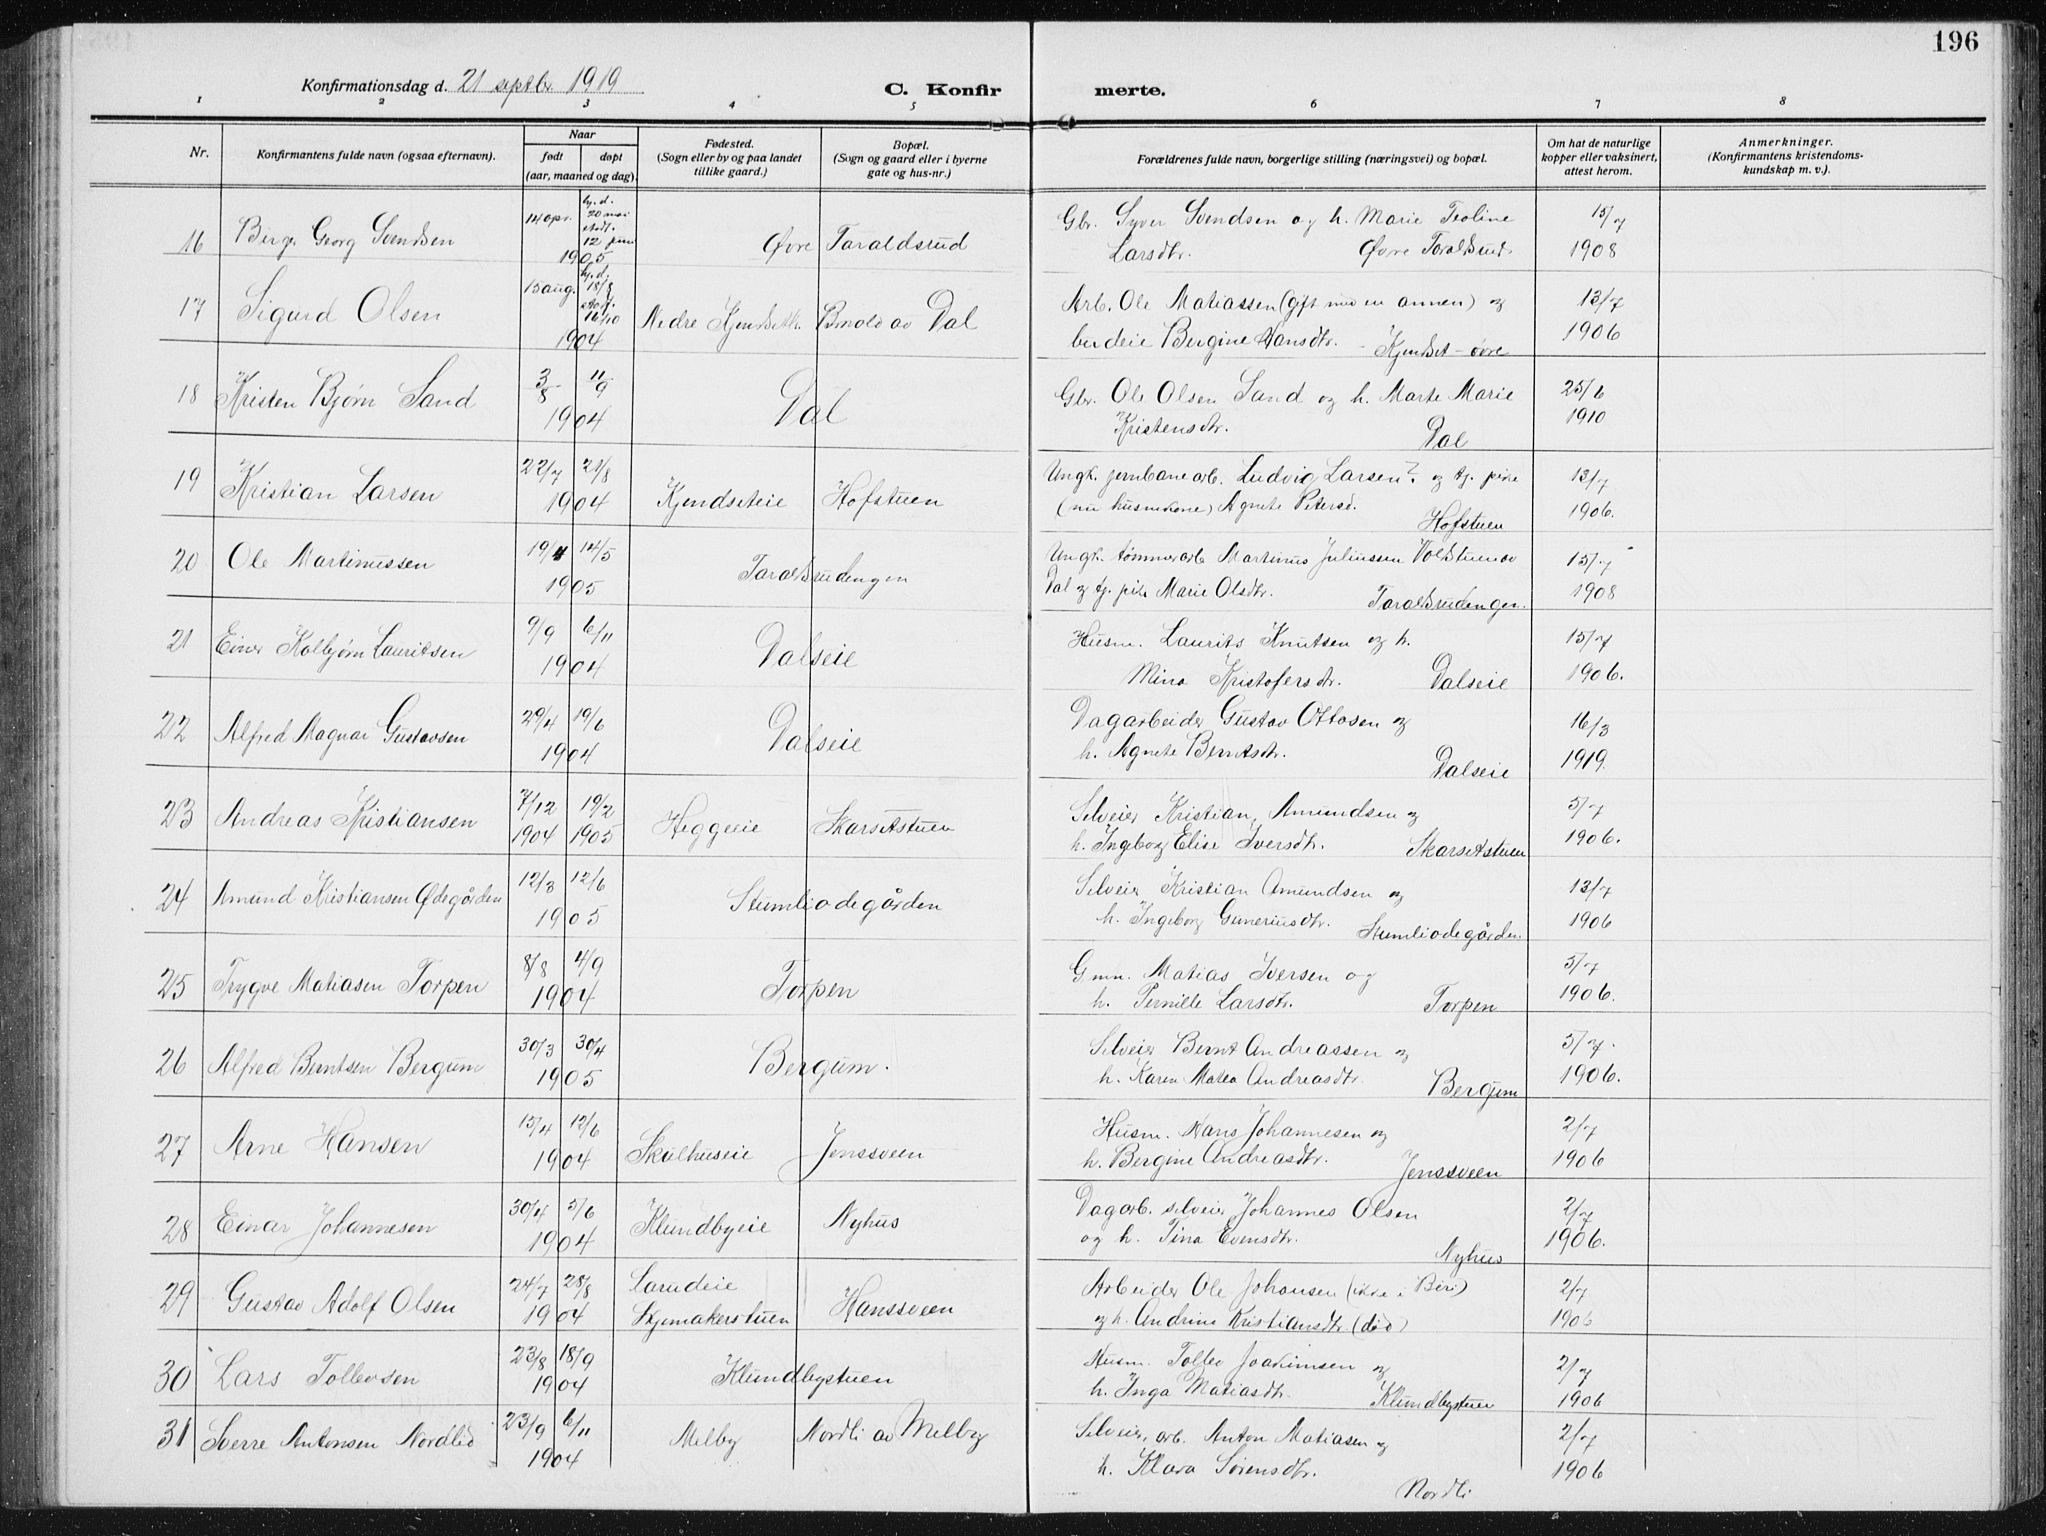 196
Konfirmationsdag d. 21 septbr 1919
C. Konfir merte.
1 2 3 4 5 6 7 8
Nr. Konfirmantens fulde navn (ogsaa efternavn). Naar født døpt (aar, maaned og dag). Fødested. (Sogn eller by og paa landet tillike gaard.) Bopæl. (Sogn og gaard eller i byerne gate og hus-nr.) Forældrenes fulde navn, borgerlige stilling (næringsvei) og bopæl. Om hat de naturlige kopper eller vaksinert, attest herom. Anmerkninger. (Konfirmantens kristendomskundskap m. v.).
16 Birger Georg Svendsen 14 apr. hj. d. 20 mai stadf. 12 juni 1905 Øvre Taraldsrud Gbr. Syver Svendsen og h. Marie Teoline 15/7
Larsdtr. Øvre Taraldsrud. 1908
17 Sigurd Olsen 13 aug. hj. d. 18/8 stadf. 16/10 1904 Nedre Kjendset Bmold av Dal Arb. Ole Matiassen (gift med en annen) og 13/7
budeie Bergine Hansdtr. - Kjendset - øvre 1906
18 Kristen Bjørn Sand 3/8 11/9 1904 Dal Gbr. Ole Olsen Sand og h. Marte Marie 25/6
Kristensdtr. Dal 1910
19 Kristian Larsen 22/7 21/8 1904 Kjendseteie Hofstuen Ungk. jernbanearb. Ludvig Larsen? og tj. pike 13/7
(nu husmkone) Agnete Petersd. Hofstuen 1906.
20 Ole Martinussen 19/4 14/5 1905 Taraldsrudengen Ungk. tømmerarb Martinus Juliussen Voldstuen av 15/7
Dal og tj. pike Marie Olsdtr. Taraldsrudengen. 1908
21 Einar Kolbjørn Lauritsen 9/9 6/11 1904 Dalseie Husm. Laurits Knutsen og h. 15/7
Mina Kristofersdtr. Dalseie 1906.
22 Alfred Magnar Gustavsen 29/4 19/6 1904 Dalseie Dagarbeider Gustav Ottosen og 16/3
h. Agnete Berntsdtr. Dalseie 1919.
23 Andreas Kristiansen 7/12 1904 19/2 1905 Heggeeie Skarsetstuen Selveier Kristian Amundsen og 5/7
h. Ingeborg Elise Iversdtr. Skarsetstuen 1906.
24 Amund Kristiansen Ødegården 12/3 12/6 1905 Stumliødegården Selveier Kristian Amundsen og 13/7
h. Ingeborg Guneriusdtr. Stumliødegården. 1906
25 Trygve Matiasen Torpen 8/8 4/9 1904 Torpen Gmn. Matias Iversen og 5/7
h. Pernille Larsdtr. Torpen 1906.
26 Alfred Berntsen Bergum 30/3 30/4 1905 Bergum. Selveier Bernt Andreassen og 5/7.
h. Karen Matea Andreasdtr. Bergum 1906.
27 Arne Hansen 15/4 12/6 1904 Skulhuseie Jonssveen Husm. Hans Johannesen og 2/7
h. Bergine Andreasdtr. Jonssveen 1906
28 Einar Johannesen 30/4 5/6 1904 Klundbyeie Nyhus Dagarb. selveier Johannes Olsen 2/7
og h. Tina Evensdtr. Nyhus 1906.
29 Gustav Adolf Olsen 24/7 28/8 1904 Skjemakerstuen Hanssveen Arbeider Ole Johansen (ikke i Biri) 2/7
og h. Andrine Kristiansdtr. (død) 1906
30 Lars Tollevsen 23/8 18/9 1904 Klundbystuen Husm. Tollev Joakimsen og 2/7
h. Inga Matiasdtr. Klundbystuen 1906
31 Sverre Antonsen Nordlid 23/9 6/11 1904 Melby Nordli av Melby Selveier, arb. Anton Matiasen og 2/7
h. Klara Sørensdtr. 1906
Nordli